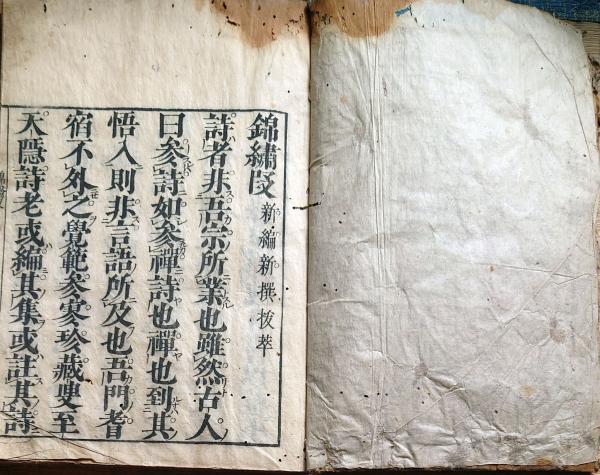 錦繡段 新編新撰拔萃
詩者非吾宗所業也雖然古人
曰參詩如參禪詩也禪也到其
悟入則非言語所及也吾門耆
宿不外之覺範參寥珍藏叟至
天隱詩老或編其集或註其詩